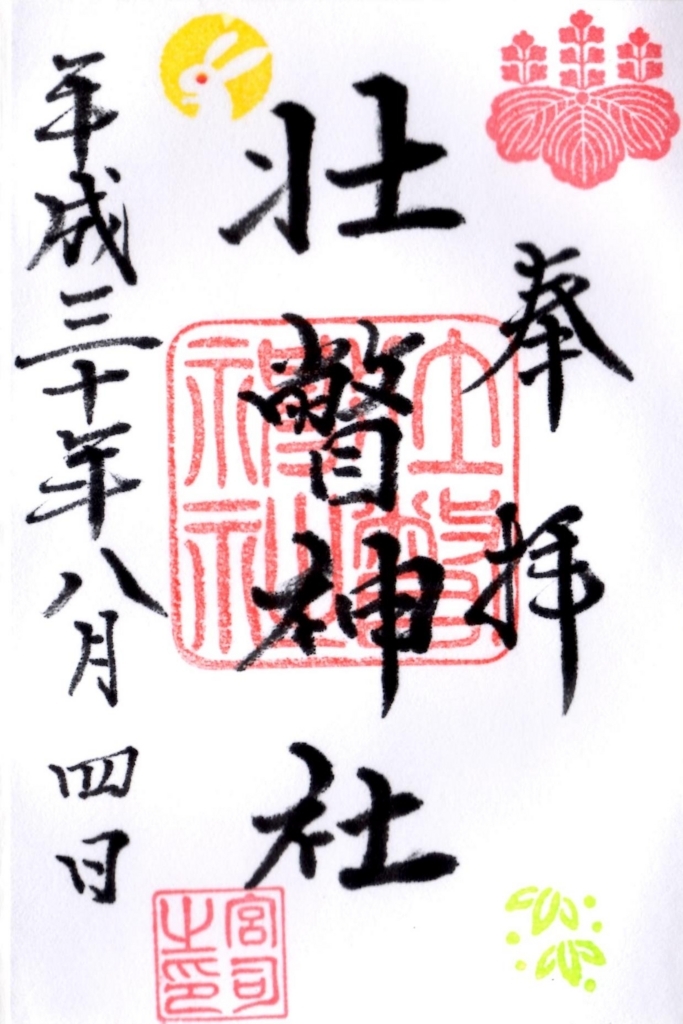 奉拝
壮瞥神社
平成三十年八月四日
壮瞥神社
宮司之印